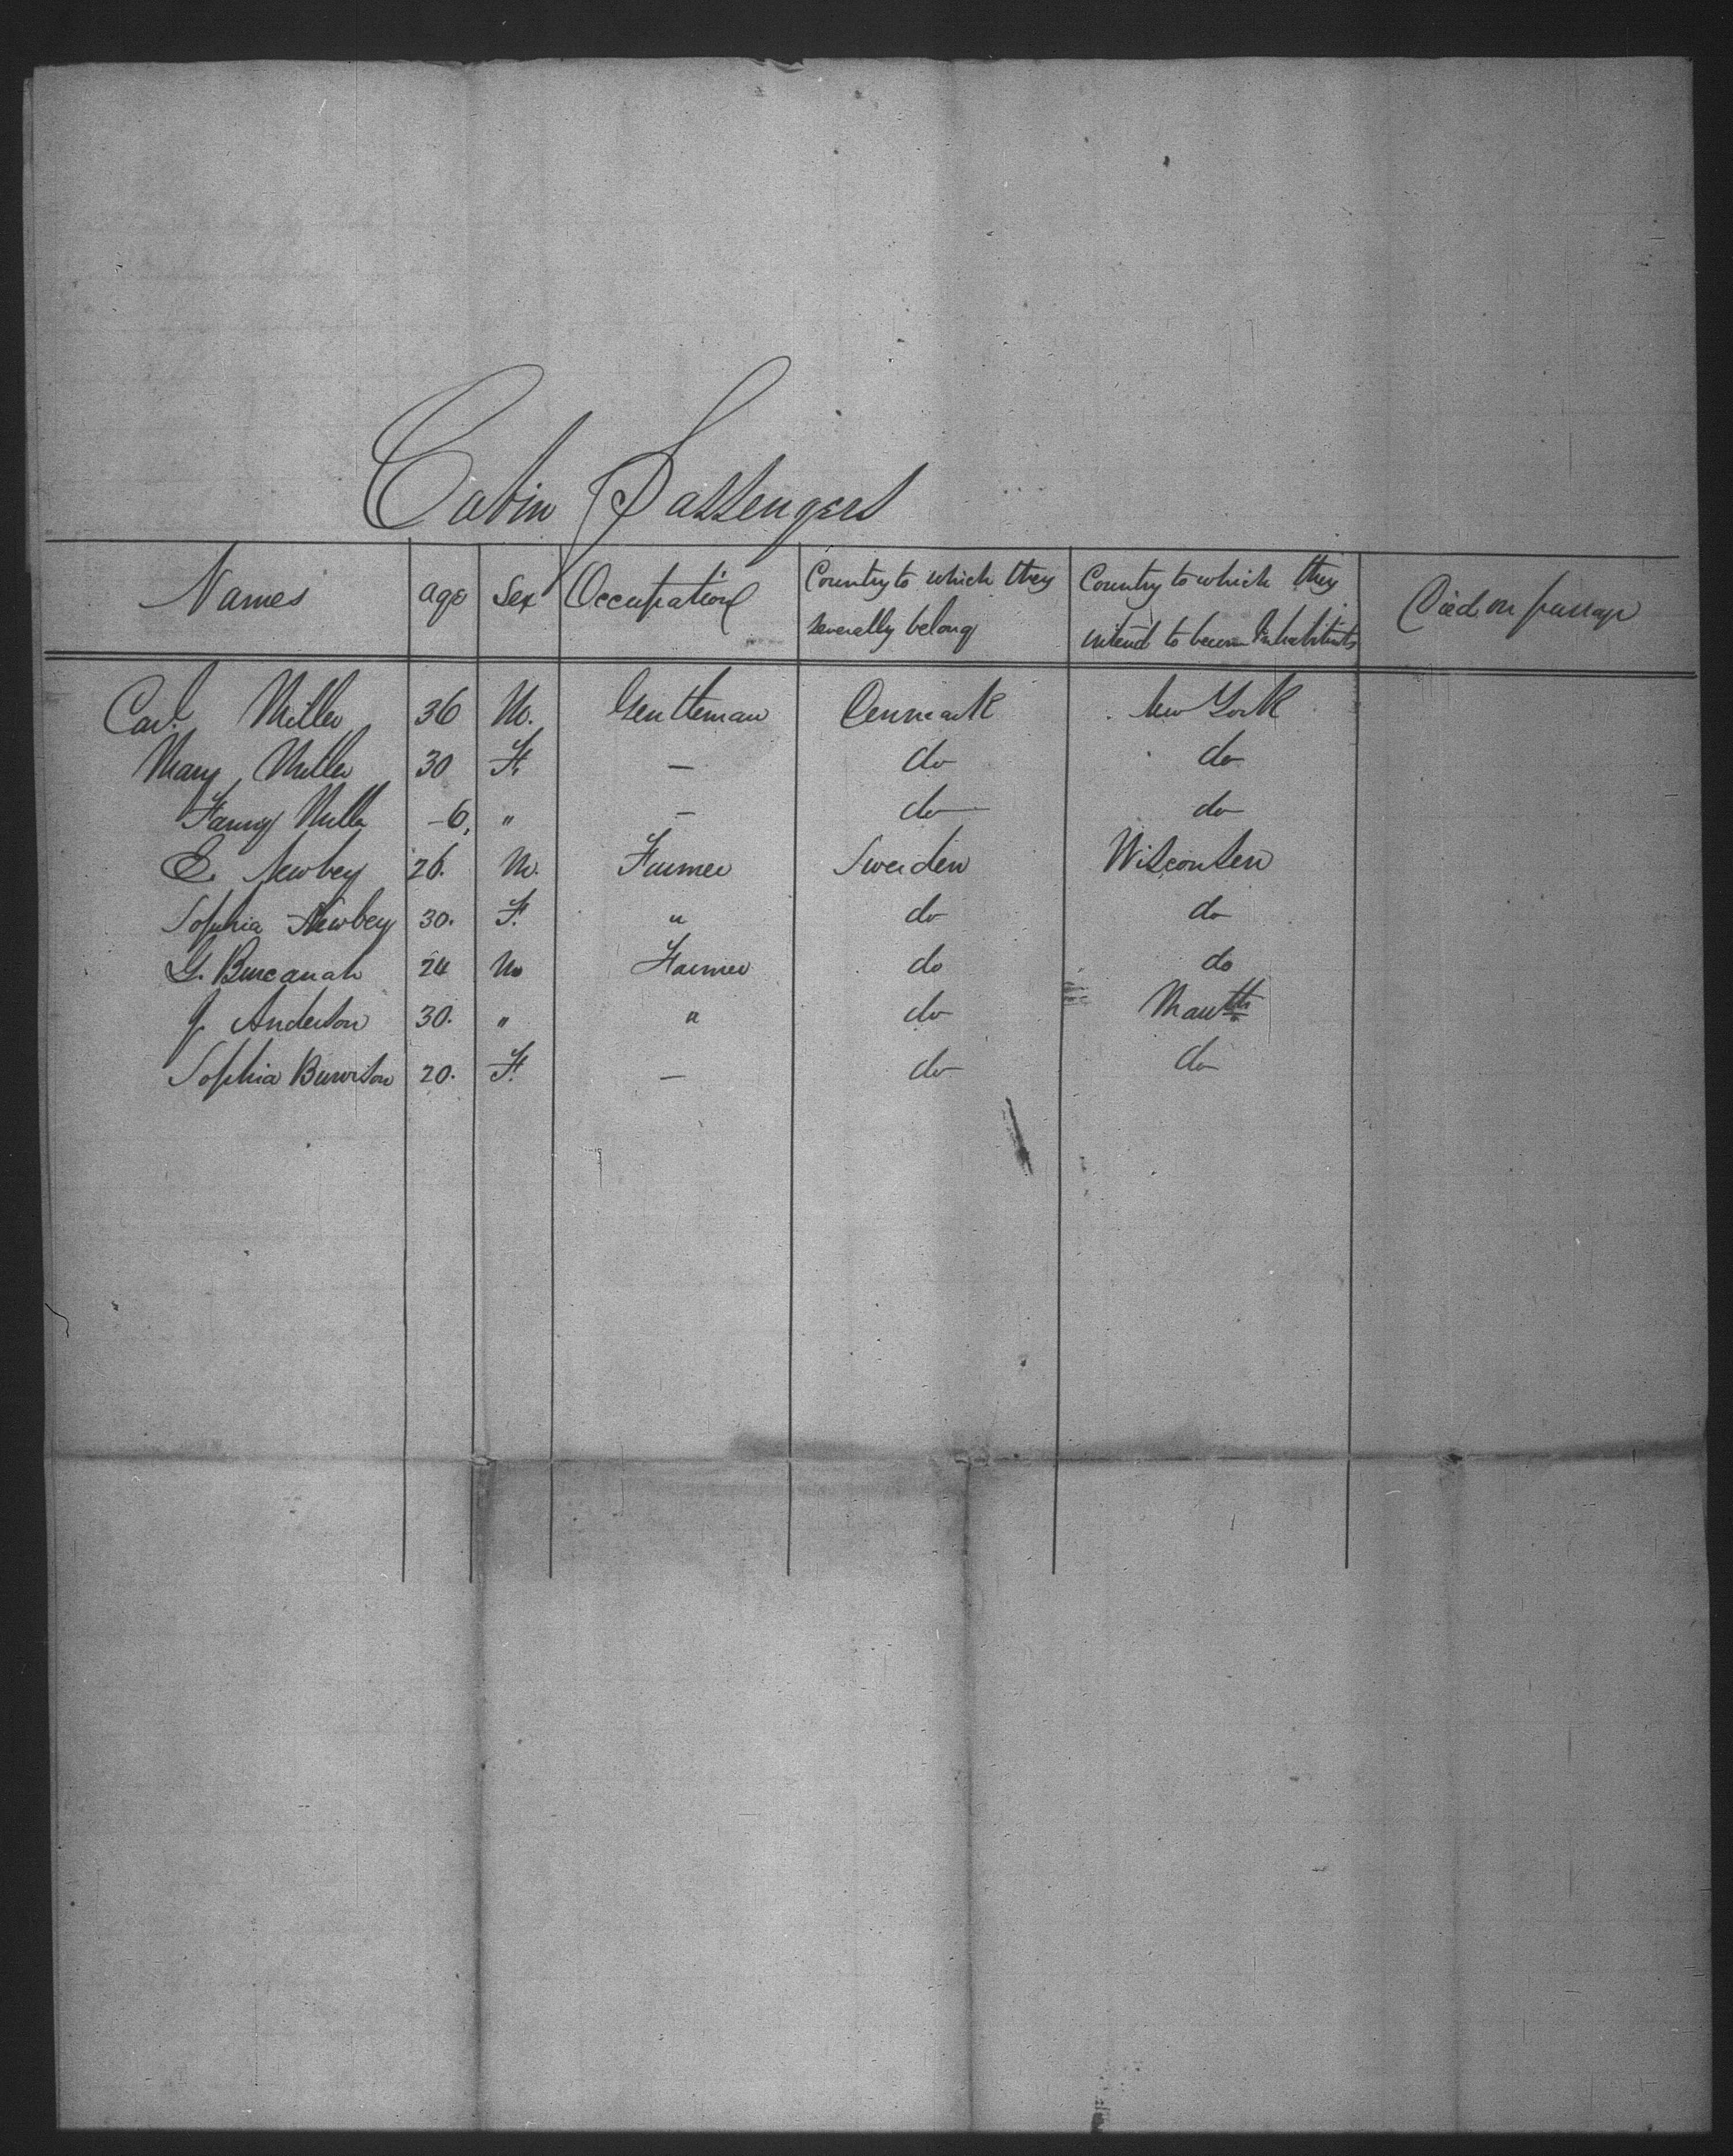 Cabin Passengers
Names age Sex Occupation Country to which they severally belong Country to which they intend to becom Inhabitants Died on passage
Carl Miller 36 M. Gentleman Denmark New York
Mary Miller 30 F. — do do
Fanny Miller 6 " — do do
E. Newbey 26. M. Farmer Sweden Wisconsen
Sophia Newbey 30. F. " do do
G. 24 M Farmer do do
J. Anderson 30. " " do
Sophia 20. F. — do do